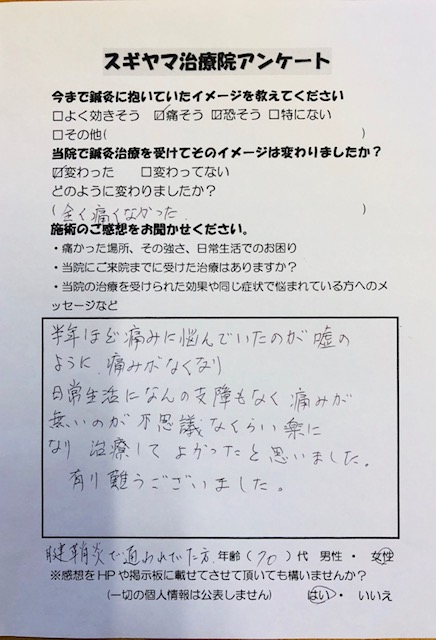 スギヤマ治療院アンケート
今まで鍼灸に抱いていたイメージを教えてください
□よく効きそう ☑痛そう ☑恐そう □特にない
□その他( )
当院で鍼灸治療を受けてそのイメージは変わりましたか？
☑変わった □変わってない
どのように変わりましたか？
(全く痛くなかった )
施術のご感想をお聞かせください。
・痛かった場所、その強さ、日常生活でのお困り
・当院にご来院までに受けた治療はありますか？
・当院の治療を受けられた効果や同じ症状で悩まれている方へのメ
ッセージなど
半年ほど痛みに悩んでいたのが嘘の
ように、痛みがなくなり
日常生活になんの支障もなく痛みが
無いのが不思議なくらい楽に
なり 治療して よかったと思いました。
有り難うございました。
腱鞘炎で通われてた方 年齢(70)代 男性・女性
※感想をHPや掲示板に載せてさせて頂いても構いませんか？
(一切の個人情報は公表しません) はい・いいえ